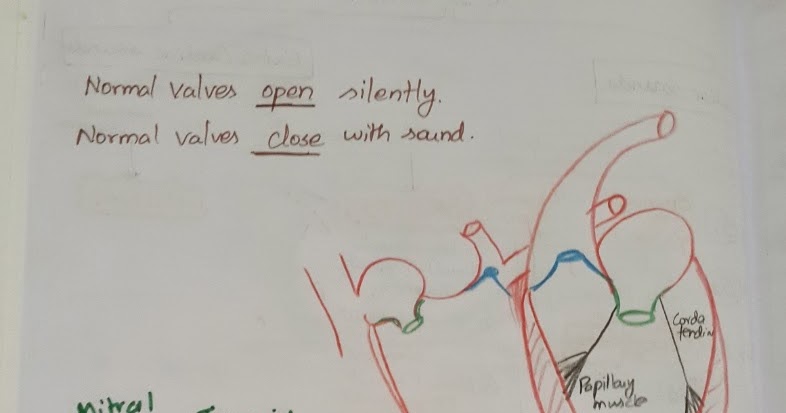 Normal valves open silently.
Normal valves close with sound.
Corda
tendin
Papillary
muscle
mitral